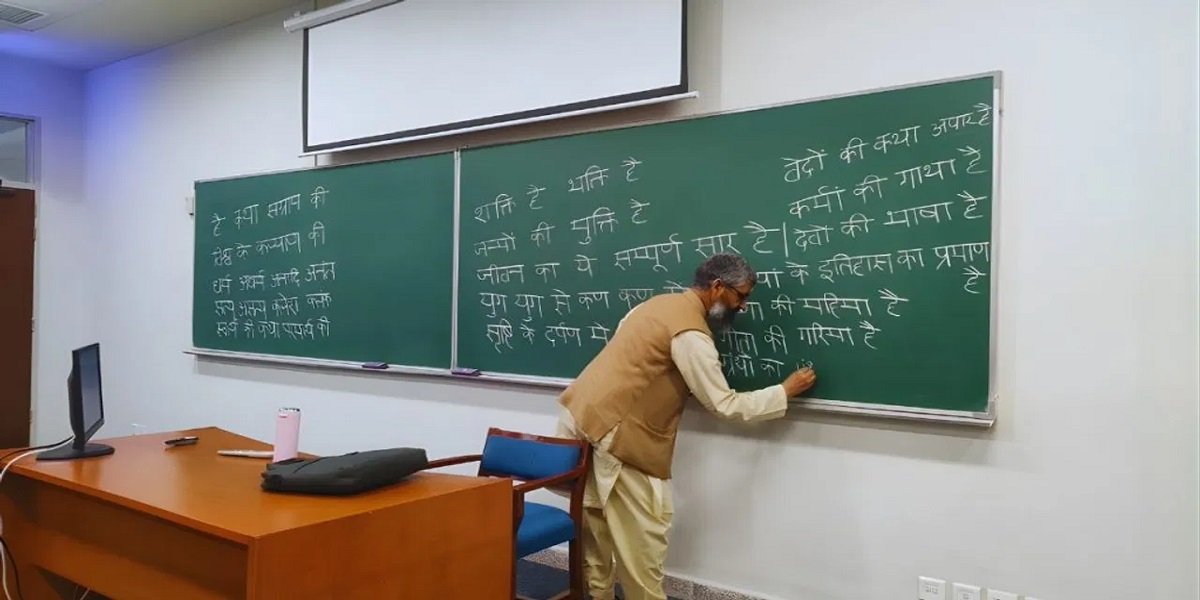 है कथा संग्राम की
विश्व के कल्याण की
धर्म अधर्म अनादि अनंत
सत्य असत्य कलेश कलंक
की कथा परमार्थ की
शक्ति है भक्ति है
जन्मों की मुक्ति है
जीवन का ये सम्पूर्ण सार है
युग युग से कण कण
सृष्टि के दर्पण मे
वेदों की कथा अपार है
कर्मों की गाथा है
देवो की भाषा है
के इतिहास का प्रमाण है
की महिमा है
गीता की गरिमा है
ग्रंथों का